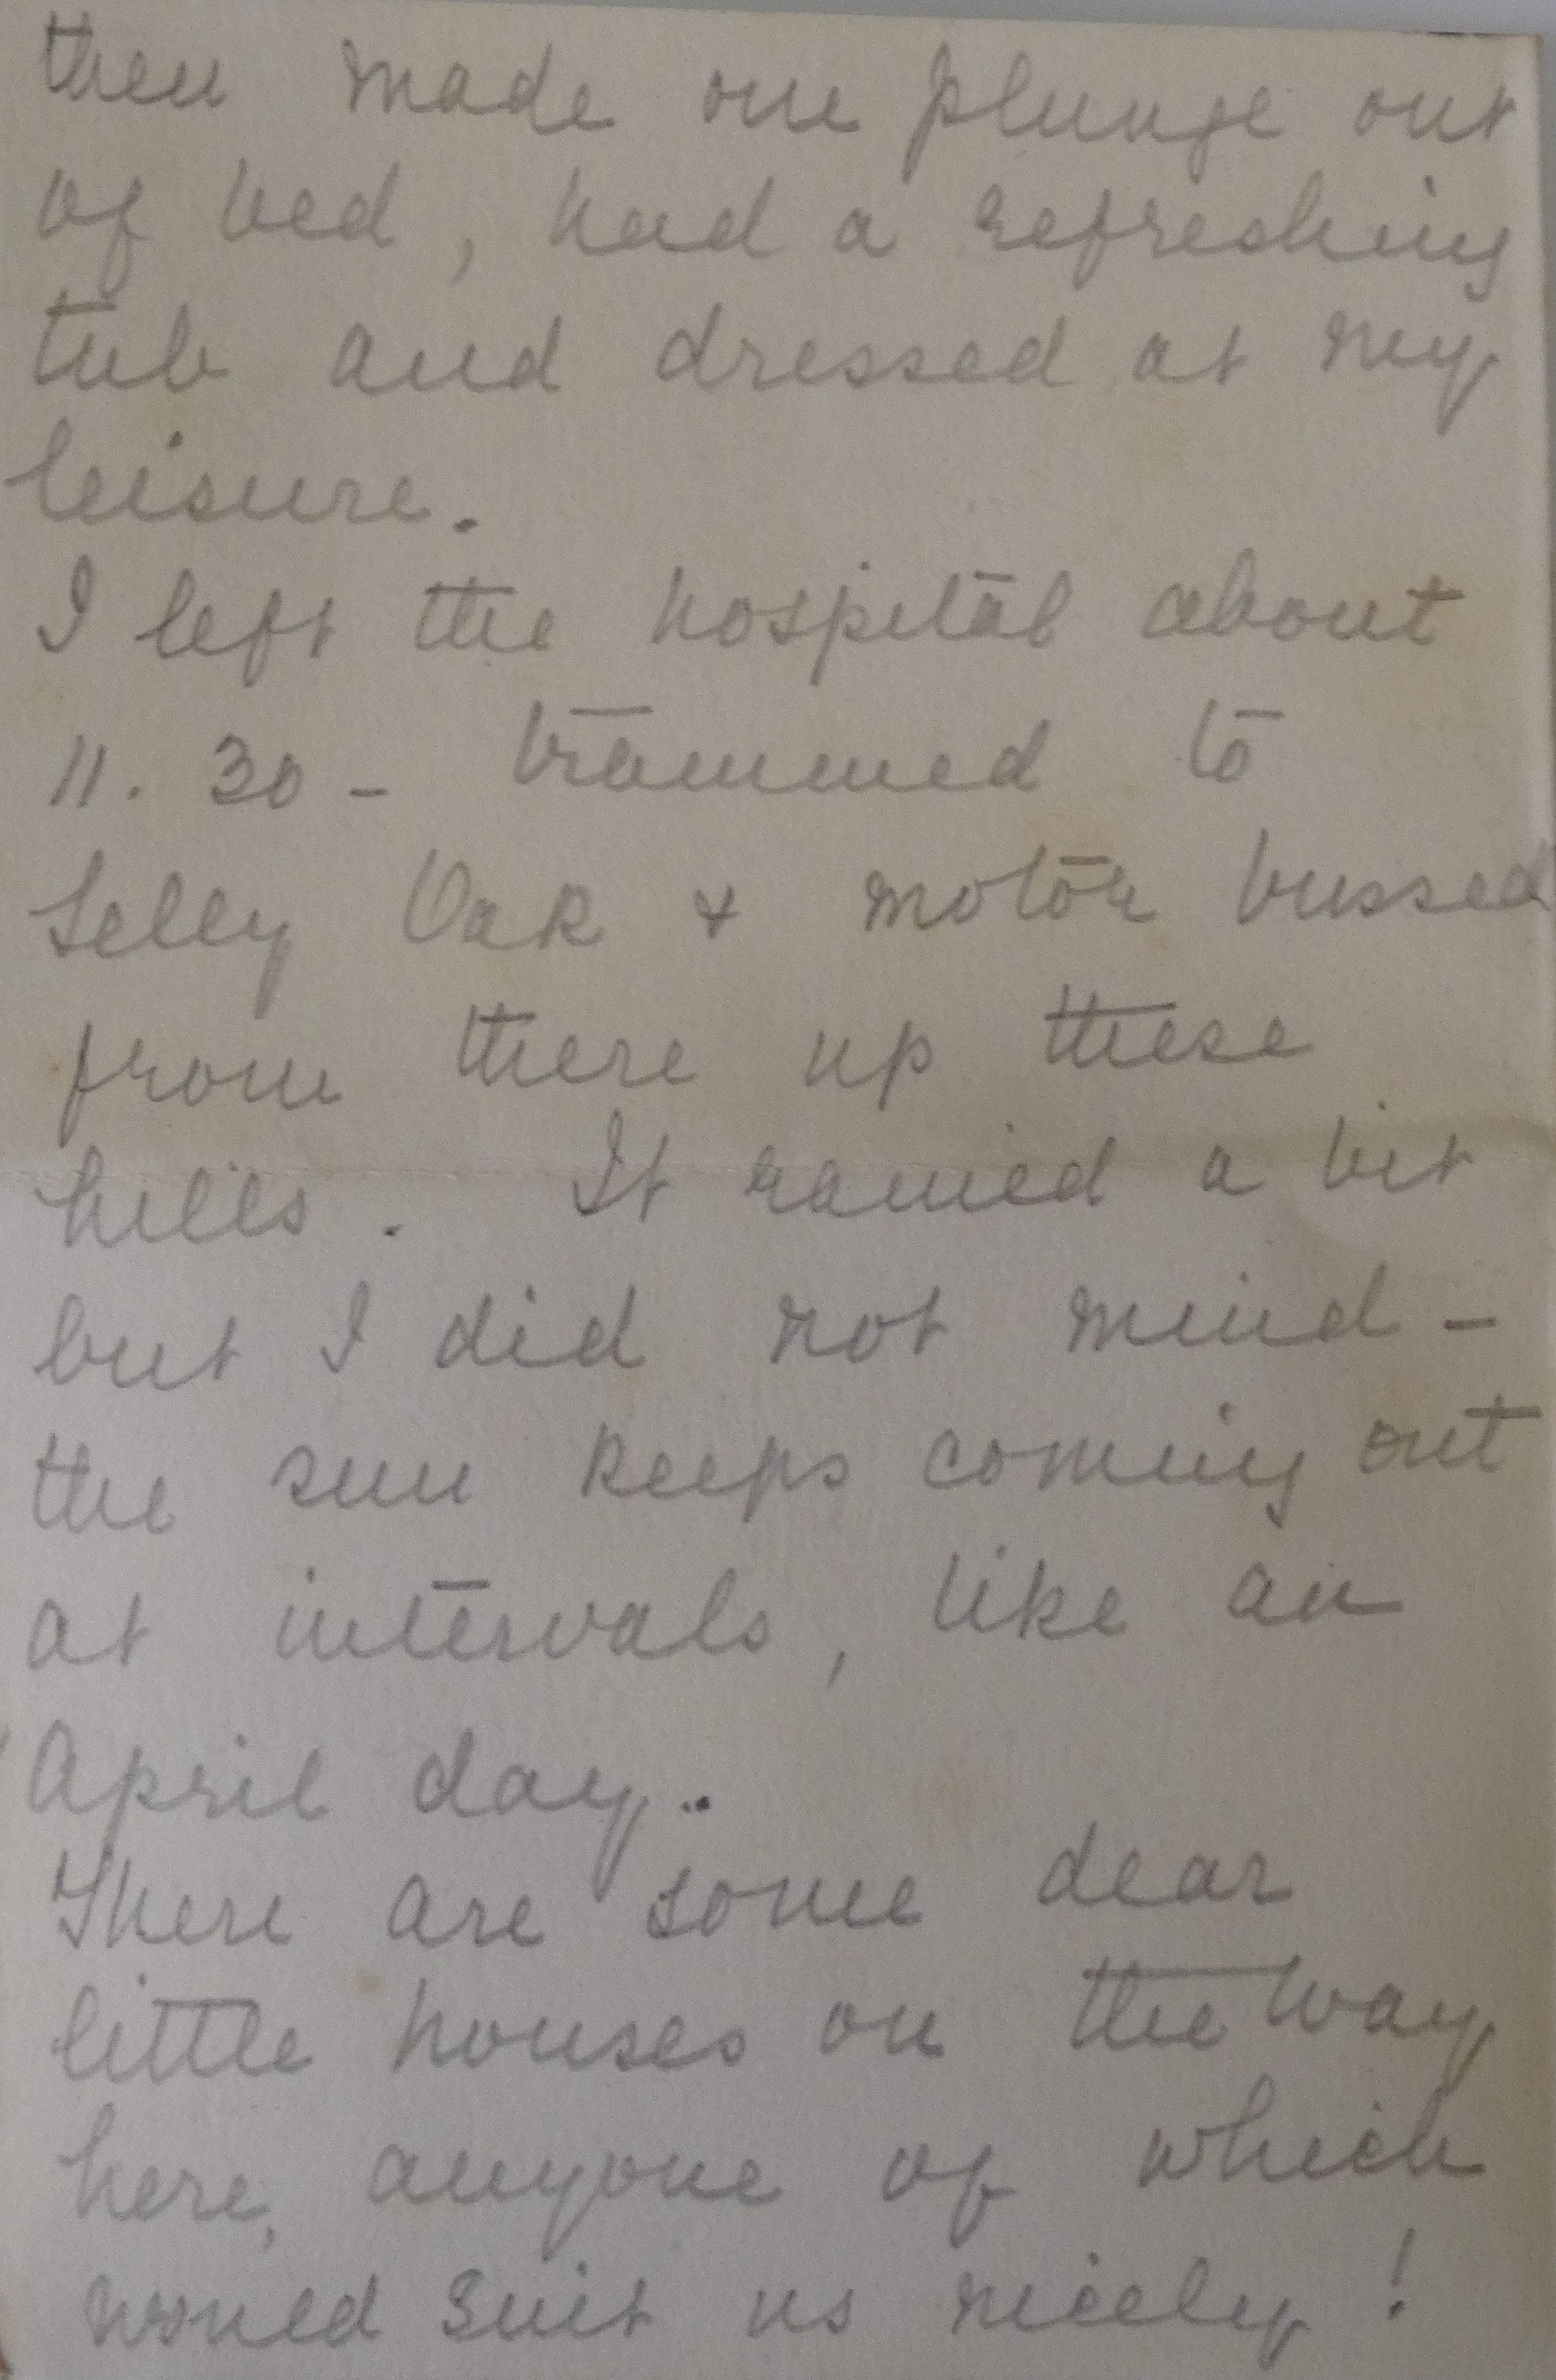 then made one plunge out
of bed, had a refreshing
tub and dressed at my
leisure.
I left the hospital about
11. 30 - trammed to
Selly Oak & motor bussed
from there up these
hills. It rained a bit
but I did not mind -
the sun keeps coming out
at intervals, like an
April day..
There are some dear
little houses on the way
here, anyone of which
would suit us nicely!